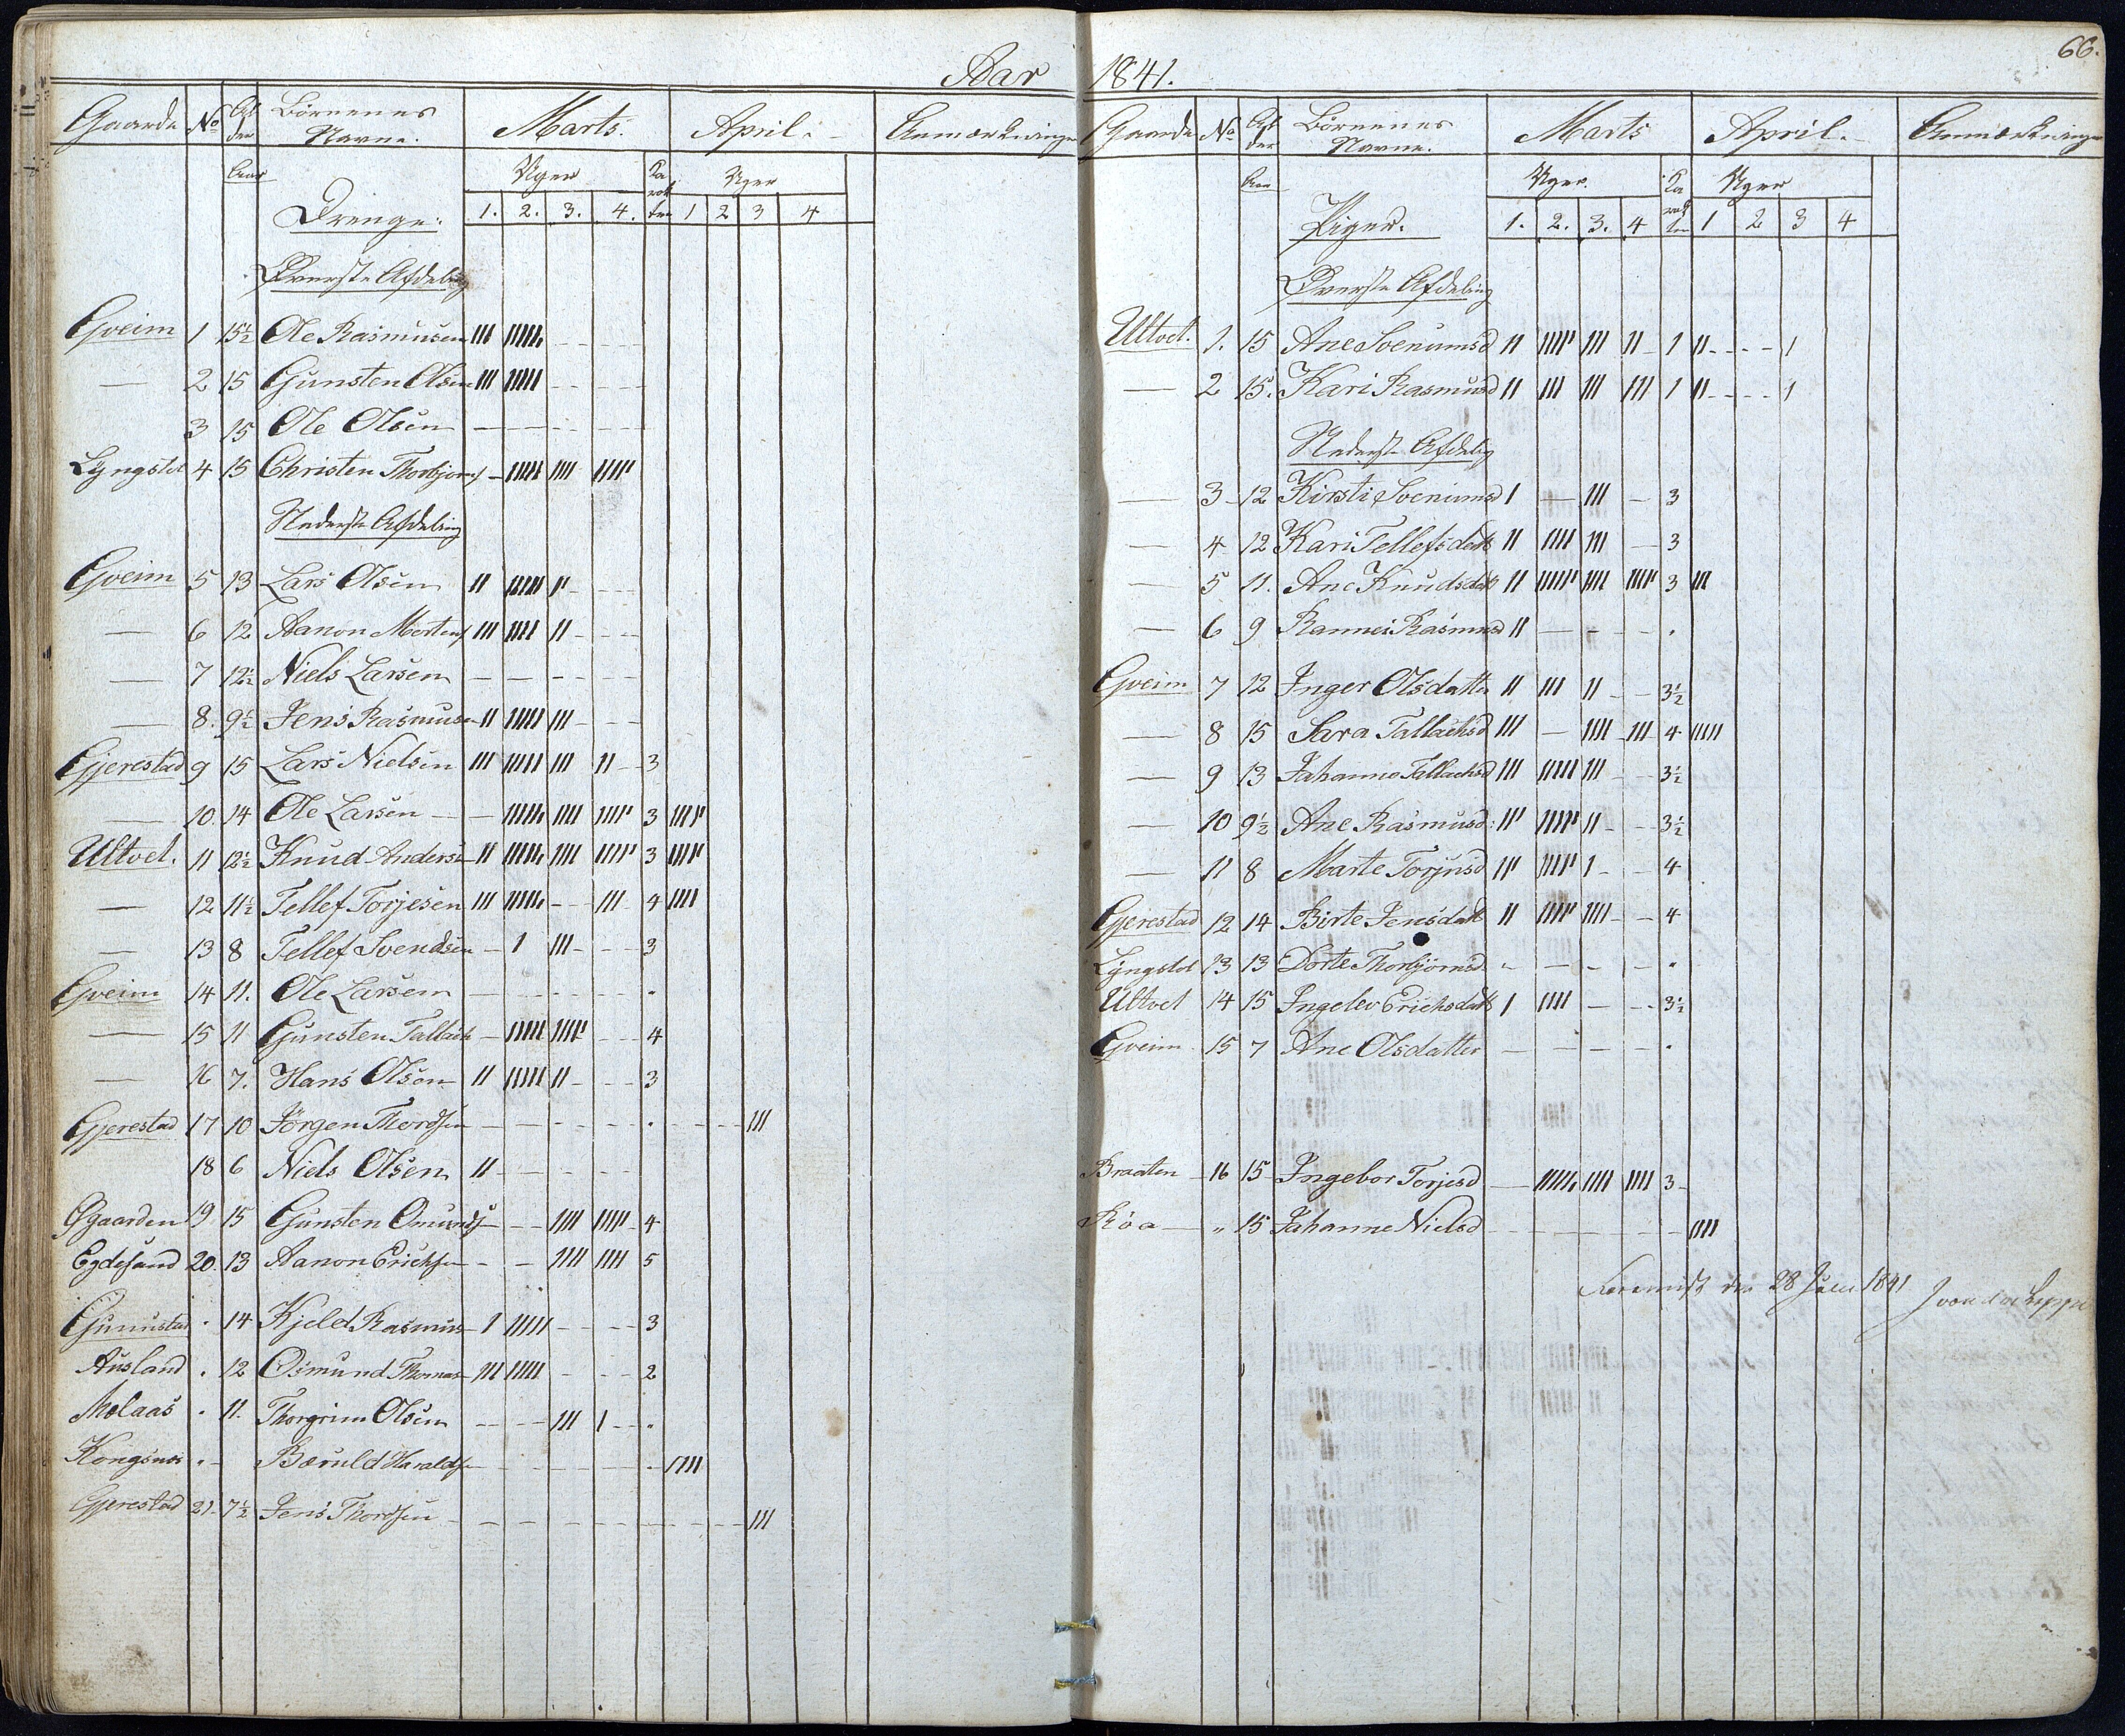 Aar 1841.
66.
Gaarde No Al der Börnenes Navne. Marts. April. Anmærkninger
Aar Drenge: Uger Ka rak ter Uger
1. 2. 3. 4. 1 2 3 4
Överste Afdeling
Gveim 1 15½ Ole Rasmusen III IIIII, - - - -
— 2 15 Gunsten Olsen III IIIII - - - -
3 15 Ole Olsen — — - - -
Lÿngstol 4 15 Christen Thorbjørns - IIIII IIII IIIII
Nederste Afdeling
Gveim 5 13 Lars Olsen II IIIII II - - -
— 6 12 Aanon Mortens III IIII II - - -
— 7 12½ Niels Larsen — — - - - -
— 8. 9½ Jens Rasmusen II IIIII III - - -
Gjerestad 9 15 Lars Nielsen III IIIII III II - 3
— 10. 14 Ole Larsen — - IIIII, IIII IIIII 3 IIII
Ultvet. 11 12½ Knud Anders II IIIII, IIII IIIII 3 IIII
— 12 11½ Tellef Torjesen III IIIII, - - III 4 IIII
— 13 8 Tellef Svendsen - I III - - - 3
Gveim 14 11. Ole Larsen — - - - - - .
— 15 11 Gunsten Tallach - IIIII IIIII - - - 4
— 16 7. Hans Olson II IIIII II - - - 3
Gjerestad 17 10 Jörgen Thordsen - - - - - . - - - III
18 6 Niels Olsen II - - - -
Gaarden 19. 15 Gunsten Omunds - - IIII IIIII - 4
Egdesund 20. 13 Aanon Erichsen - - IIII IIII 5
Gunustad . 14 Kjeld Rasmus I IIIII - - - - 3
Ausland . 12 Osmund Thomas III IIIII - - - - 2
Molaas . 11. Thorgrim Olsen - - - III I - .
Kongsnæs . - Bæruld Haraldsen - - - - - . IIII
Gjerestad 21. 7½ Jens Thordsen - - - - - - - - III
Gaarde No Al der Börnenes Navne. Marts April. Anmærkninger
Aar Piger. Uger. Ka rak ter Uger
1. 2. 3. 4 1 2 3 4
Överste Afdeling
Ultvet. 1. 15 Ane Svenumsd II IIIII III II - 1 II - - - I
— 2 15. Kari Rasmusd II III III III 1 II - - - I
Nederste Afdeling
— 3 - 12 Kirsti Svenumsd I — III - 3
— 4 12 Kari Tellefsdatt II IIII III — 3
— 5 11. Ane Knudsdatt II IIIII IIII IIIII 3 III
— 6 9 Rannei Rasmusd II — - - - .
Gveim 7 12 Inger Olsdatter II III II - - 3½
— 8 15 Sara Tallachsd III — IIII III 4 IIIII
— 9 13 Jahanne Tallachsd III IIIII III - - 3½
— 10 9½ Ane Rasmusd: III IIIII II - - - 3½
— 11 8 Marte Torjusd III IIIII I - - - 4
Gjerestad 12 14 Birte Jensdatt II IIIII IIII - - 4
Lÿngstol 13 13 Dorte Thorbjörnsd. - — - - .
Ultvet 14 15 Ingelev Erichsdatt I IIII — - - 3½
Gveim 15 7 Ane Olsdatter — — - - .
Braaten - 16 15 Ingebor Torjesd — IIIII, IIII IIII 3 -
Röa — " 15 Jahanne Nielsd - - - - - - IIII
28 Juli 1841